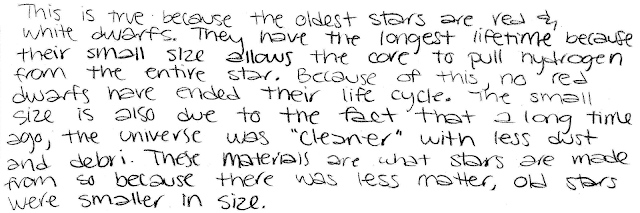 This is true because the oldest stars are red &
white dwarfs. They have the longest lifetime because
their small size allows the core to pull hydrogen
from the entire star. Because of this, no red
dwarfs have ended their life cycle. The small
size is also due to the fact that a long time
ago, the universe was "cleaner" with less dust
and debri. These materials are what stars are made
from so because there was less matter, old stars
were smaller in size.